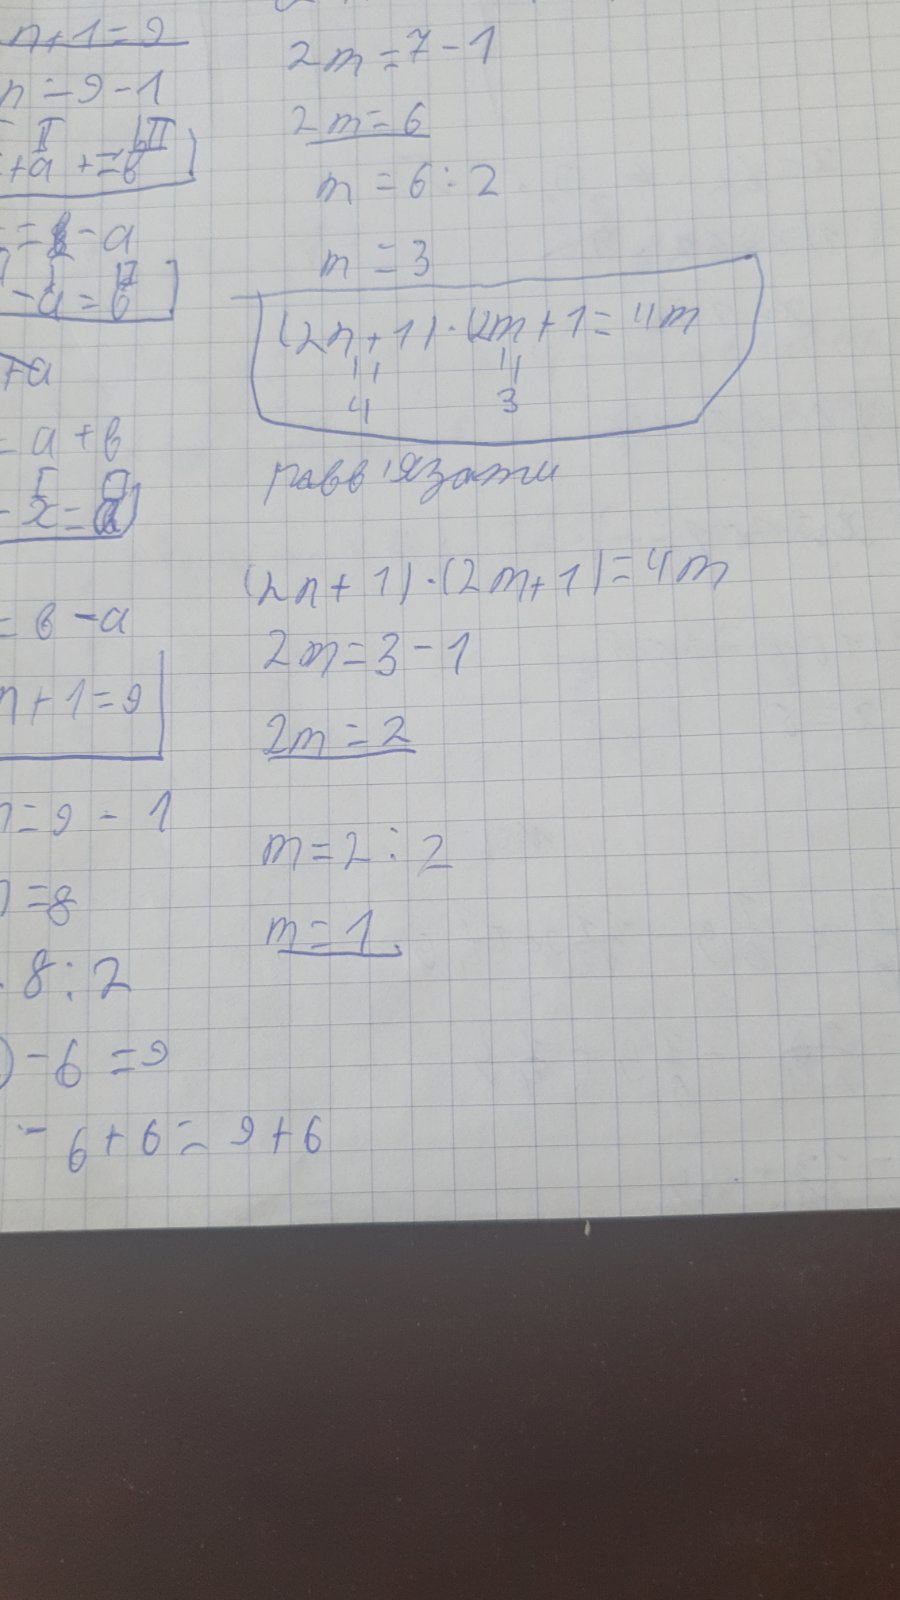 n+1=9
n=9-1
+a+=b
=-a
-a=b
+a
=a+b
-x=
=b-a
n+1=9
n=9-1
n=8
8:2
)-6=9
-6+6=9+6
2m=7-1
2m=6
m=6:2
m=3
(2n+1)·(2m+1=4m
4 3
розв'язати
(2n+1)·(2m+1)=4m
2m=3-1
2m=2
m=2:2
m=1